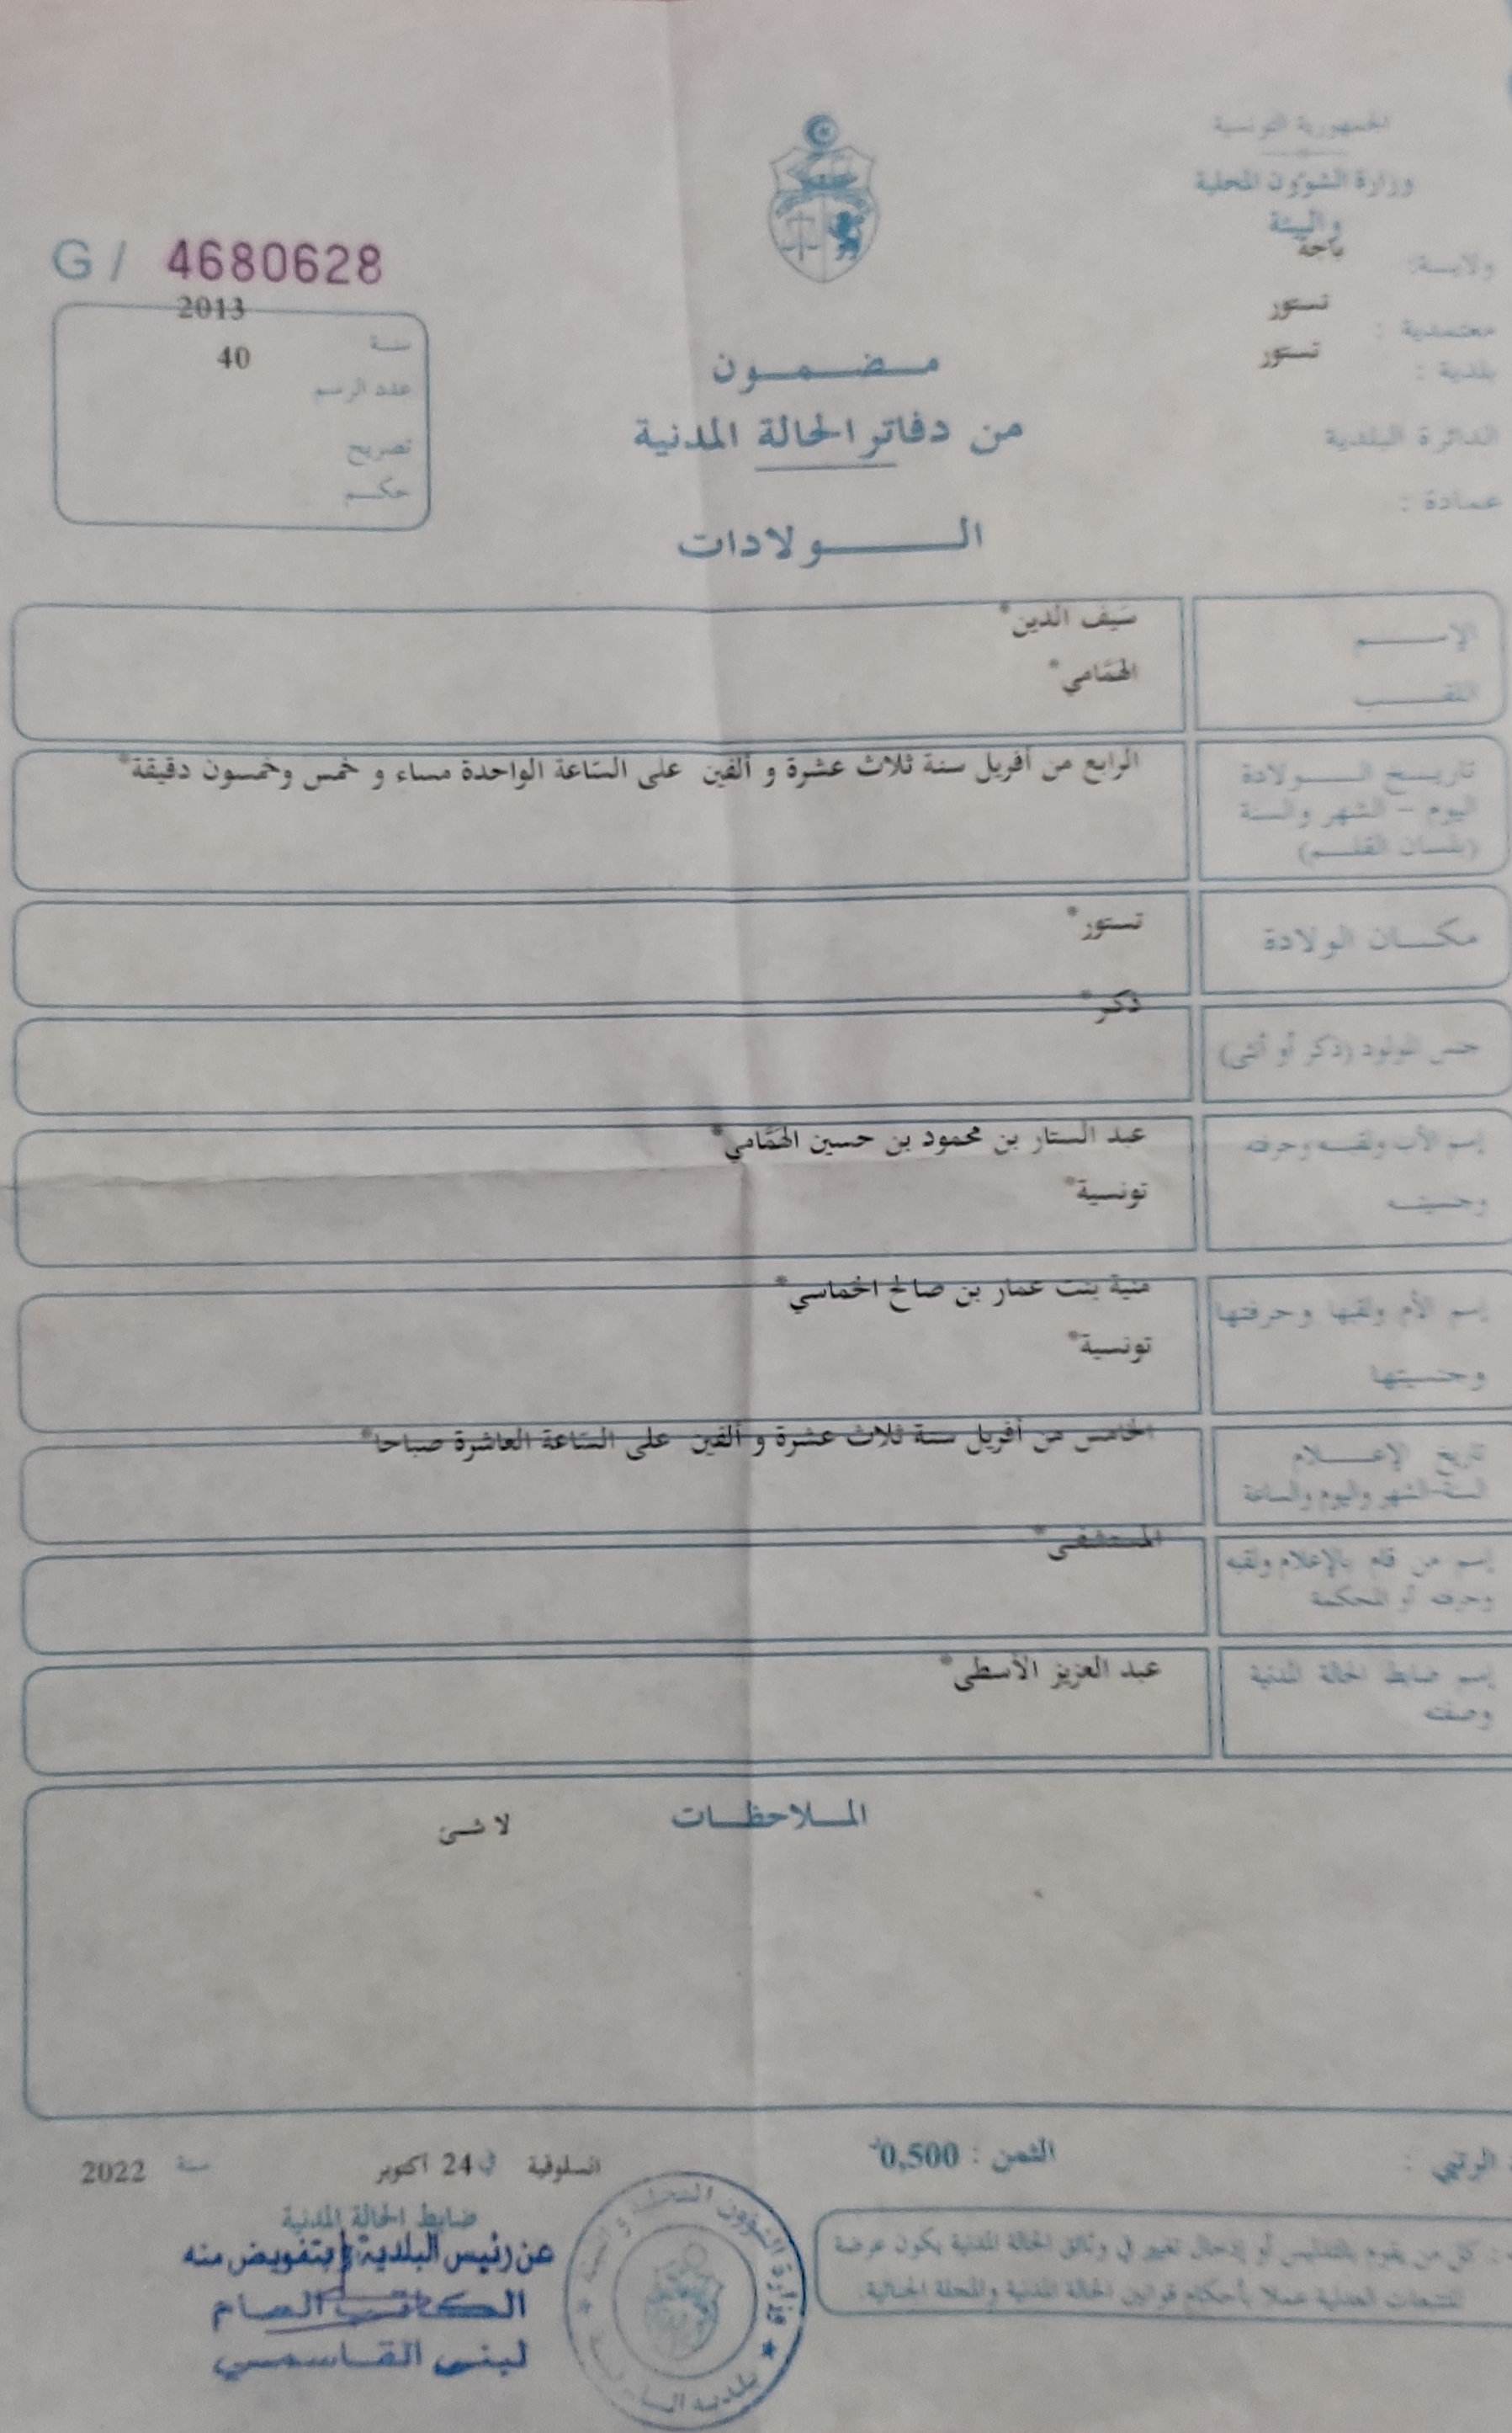 الجمهورية التونسية
وزارة الشؤون المحلية
والبيئة
ولايـة: باجة
معتمدية : تستور
بلدية : تستور
الدائرة البلدية
عمادة :
G / 4680628
سنـة 2013
عدد الرسم 40
تصريح
حكـم
مـضـمـون
من دفاتر الحالة المدنية
الـولادات
الإسـم سَيف الدين*
اللقـب الهمّامي*
تاريـخ الـولادة الرابع من أفريل سنة ثلاث عشرة و ألفين على السّاعة الواحدة مساء و خمس وخمسون دقيقة*
اليوم - الشهر والسنة
(بلسان القلـم)
مكـان الولادة تستور*
جنس المولود (ذكر أو أنثى) ذكر*
إسم الأب ولقبـه وحرفته عبد الستار بن محمود بن حسين الهمّامي*
وجنسيتـه تونسية*
إسم الأم ولقبها وحرفتها منية بنت عمار بن صالح الخماسي*
وجنسيتها تونسية*
تاريخ الإعـلام الخامس من أفريل سنة ثلاث عشرة و ألفين على السّاعة العاشرة صباحا*
السنة-الشهر واليوم والساعة
إسم من قام بالإعلام ولقبه المستشفى*
وحرفته أو المحكمة
إسم ضابط الحالة المدنية عبد العزيز الأسطى*
وصفته
الملاحظـات لا شئ
الرتبي :
الثمن : 0,500د
السلوقية في 24 أكتوبر سنة 2022
ضابط الحالة المدنية
عن رئيس البلدية وبتفويض منه
الكاتب العام
لبنى القاسمي
وزارة الشؤون المحلية و البيئة
بلدية
: كل من يقوم بالتدليس أو إدخال تغيير في وثائق الحالة المدنية يكون عرضة
للتتبعات العدلية عملا بأحكام قوانين الحالة المدنية والمجلة الجنائية.